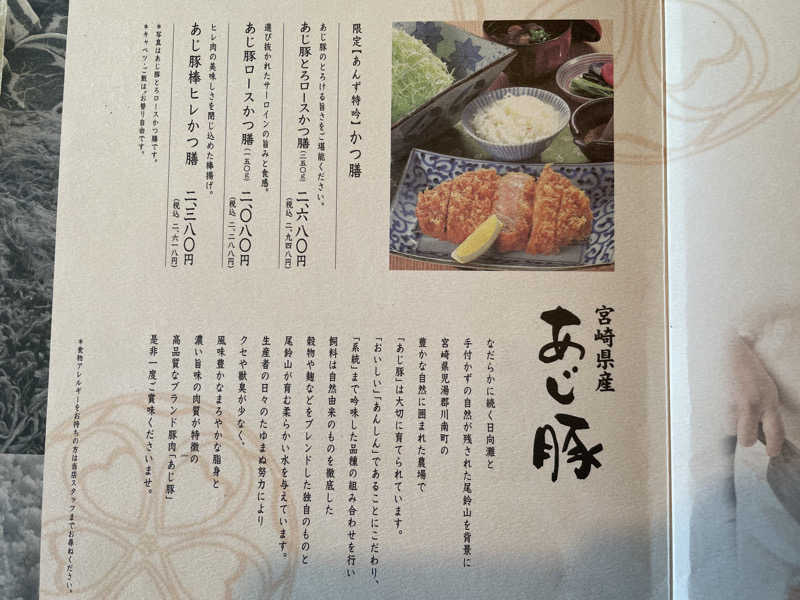 限定【あんず特吟】かつ膳
あじ豚のとろける旨さをご堪能ください。
あじ豚とろロースかつ膳(二五〇g) 二、六八〇円
(税込 二、九四八円)
選び抜かれたサーロインの旨みと食感。
あじ豚ロースかつ膳(一五〇g) 二、〇八〇円
(税込 二、二八八円)
ヒレ肉の美味しさを閉じ込めた棒揚げ。
あじ豚棒ヒレかつ膳 二、三八〇円
(税込 二、六一八円)
*写真はあじ豚とろロースかつ膳です。
*キャベツ・ご飯は、お替り自由です。
宮崎県産
あじ豚
なだらかに続く日向灘と
手付かずの自然が残された尾鈴山を背景に
宮崎県児湯郡川南町の
豊かな自然に囲まれた農場で
「あじ豚」は大切に育てられています。
「おいしい」「あんしん」であることにこだわり、
「系統」まで吟味した品種の組み合わせを行い
飼料は自然由来のものを徹底した
穀物や麹などをブレンドした独自のものと
尾鈴山が育む柔らかい水を与えています。
生産者の日々のたゆまぬ努力により
クセや獣臭が少なく、
風味豊かなまろやかな脂身と
濃い旨味の肉質が特徴の
高品質なブランド豚肉「あじ豚」
是非一度ご賞味くださいませ。
*食物アレルギーをお持ちの方は当店スタッフまでお尋ねください。